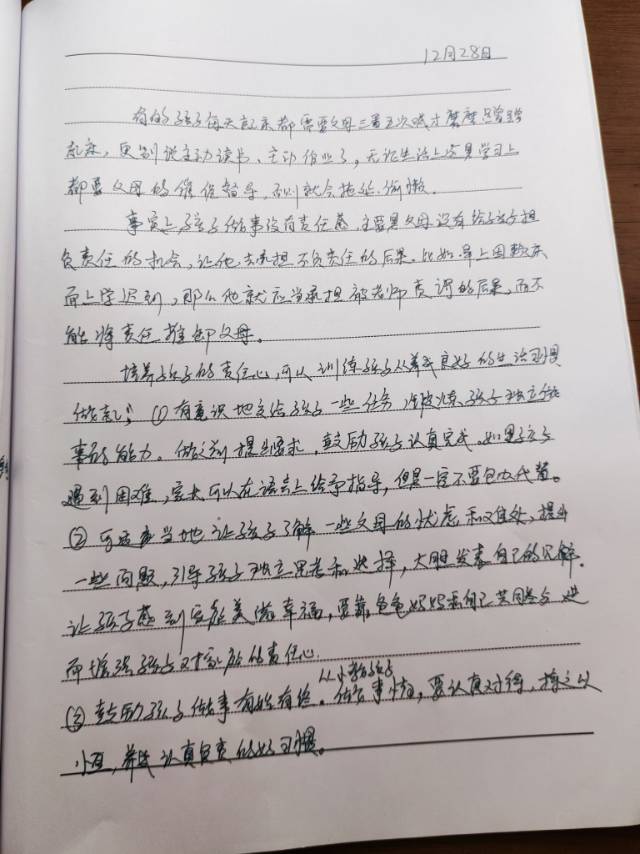 12月28日
有的孩子每天起床都需要父母三番五次喊才磨磨蹭蹭
起床,更别说主动读书、主动作业了,无论生活上还是学习上
都要父母的催促督导,否则就会拖延、偷懒。
事实上孩子做事没有责任感,主要是父母没有给孩子担
负责任的机会,让他去承担不负责任的后果。比如早上因赖床
而上学迟到,那么他就应当承担被老师责罚的后果,而不
能将责任推卸父母。
培养孩子的责任心,可以训练孩子从养成良好的生活习惯
做起;①有意识地交给孩子一些任务,锻炼孩子独立做
事的能力。做之前提出要求,鼓励孩子认真完成。如果孩子
遇到困难,家长可以在语言上给予指导,但是一定不要包办代替。
②可适当地让孩子了解一些父母的忧虑和难处,提出
一些问题,引导孩子独立思考和选择,大胆发表自己的见解。
让孩子感到家庭美满幸福,要靠爸爸妈妈和自己共同参与,进
而增强孩子对家庭的责任心。
③鼓励孩子做事有始有终。从小教孩子做事情,要认真对待,持之以
恒,养成认真负责的好习惯。